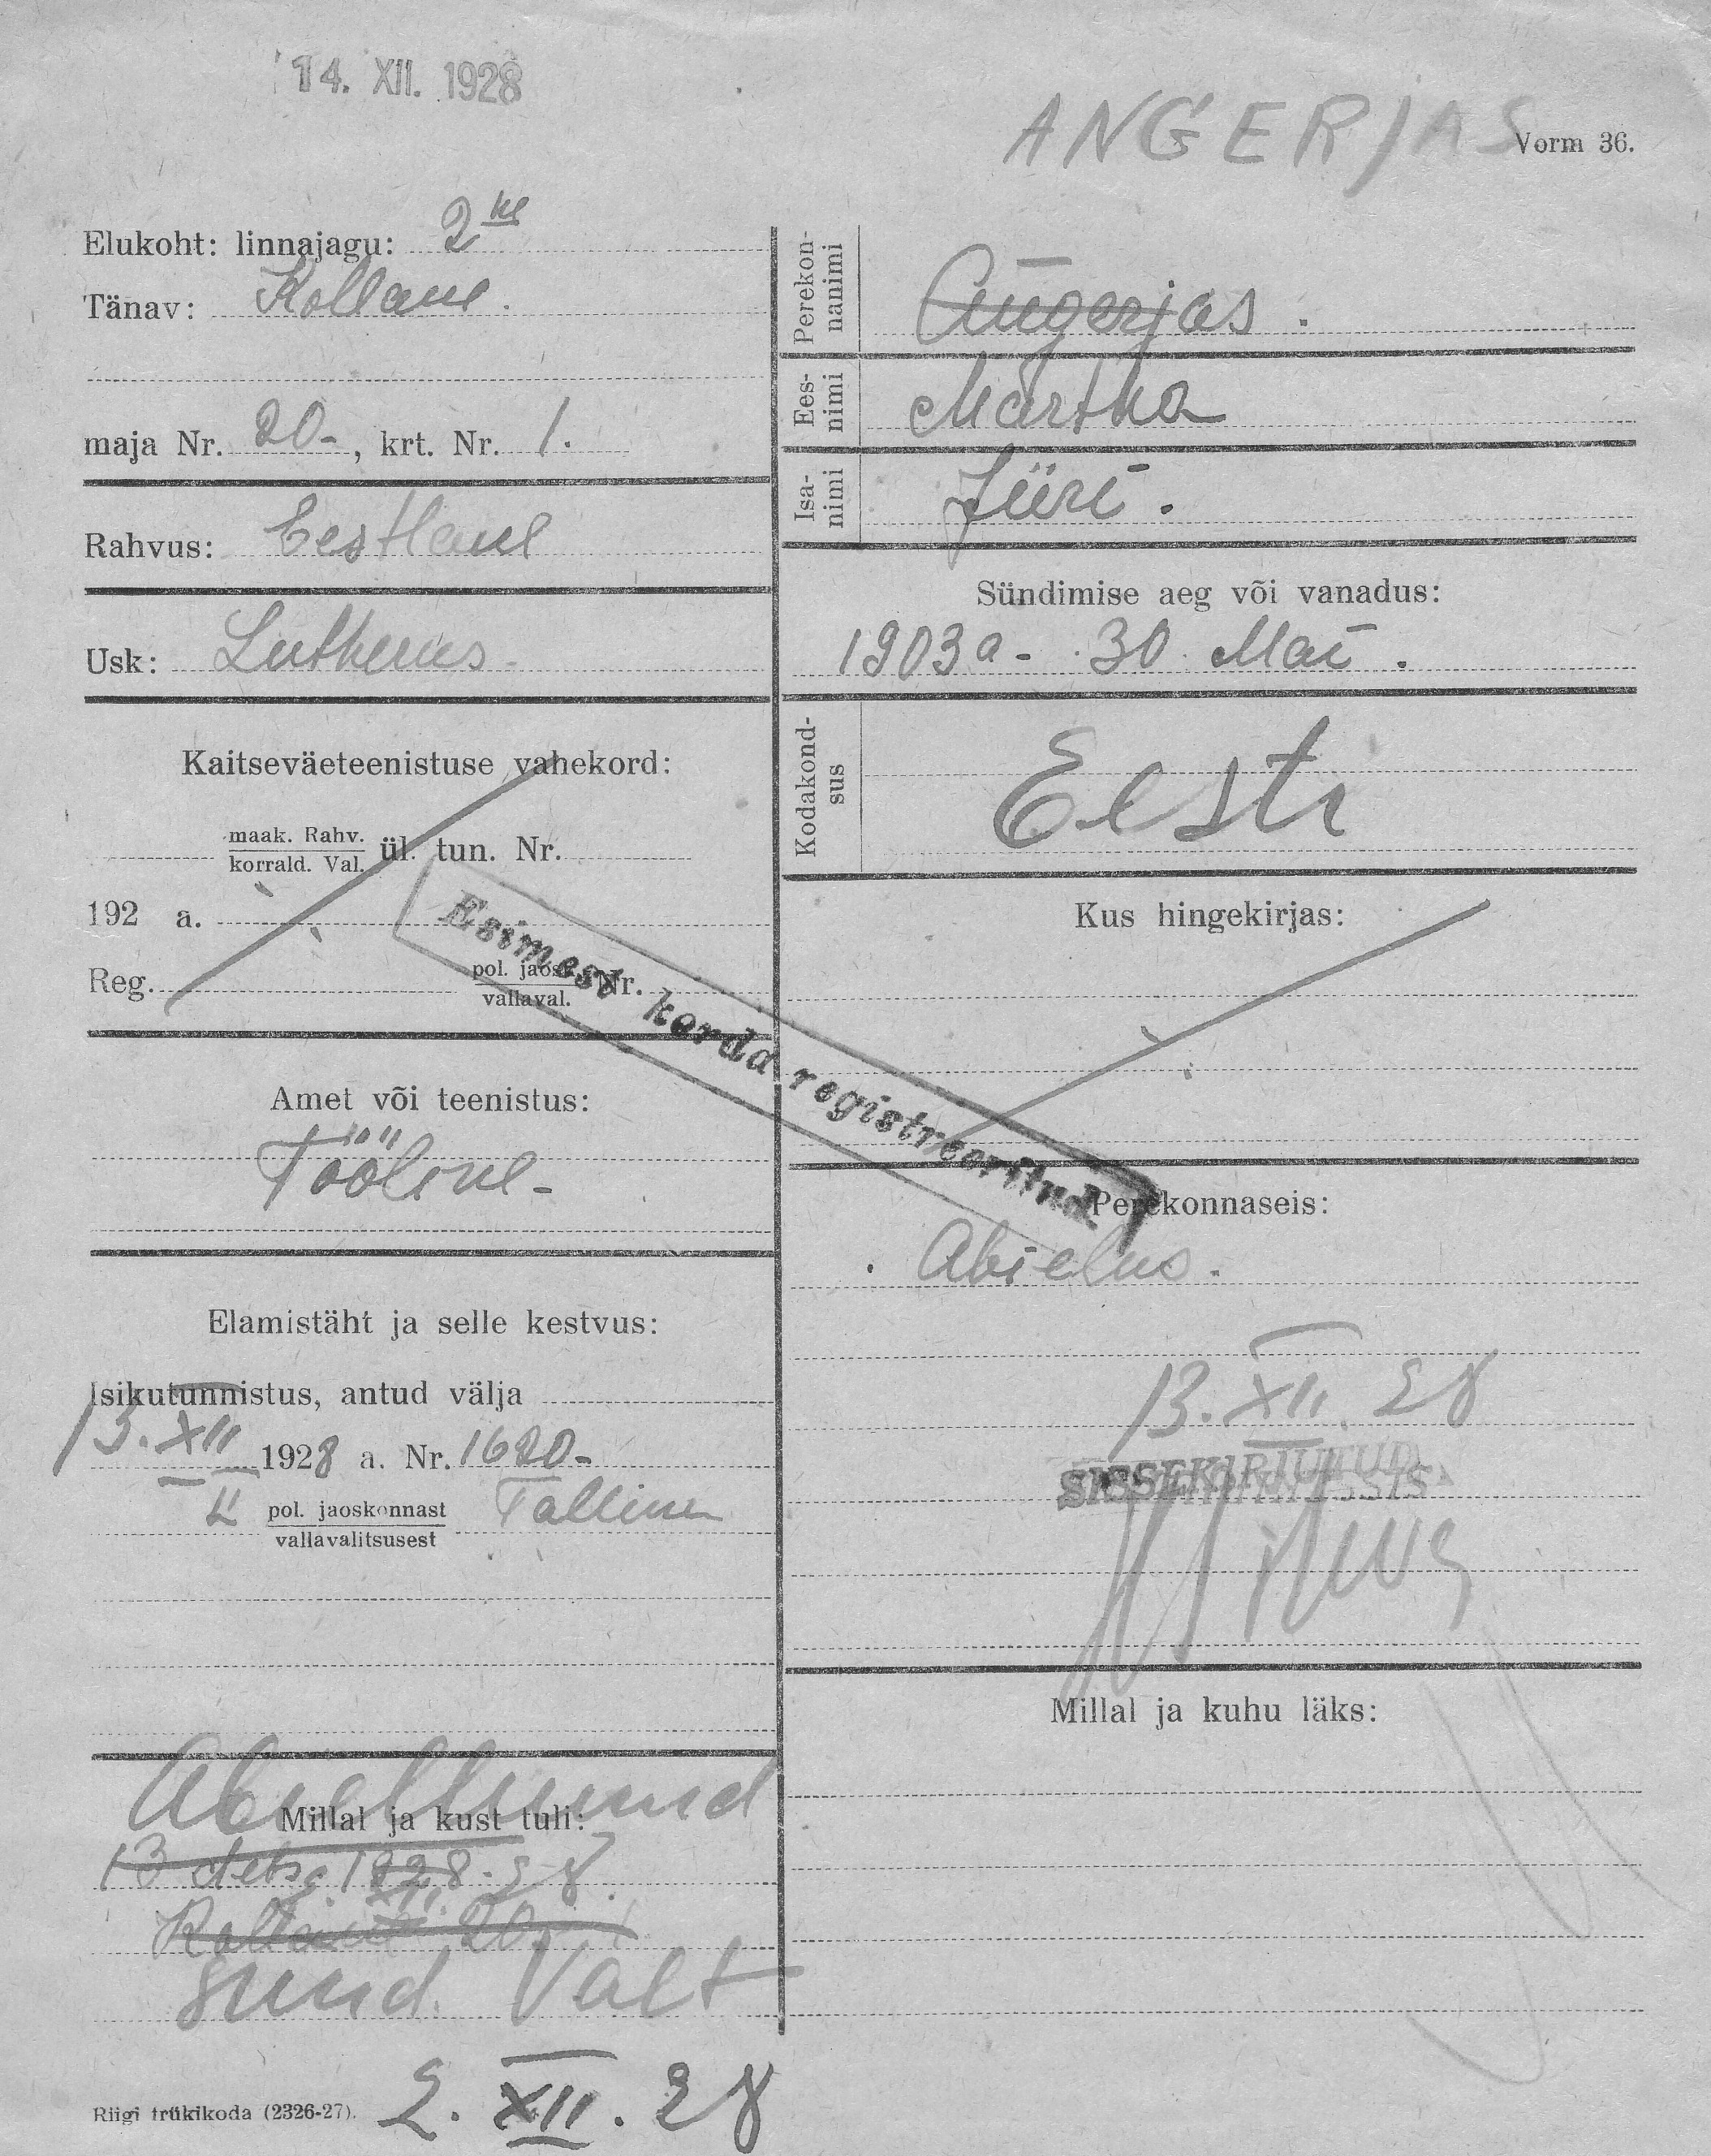 14. XII. 1928
ANGERJAS
Vorm 36.
Elukoht: linnajagu: 2
Tänav: Kollane.
maja Nr. 20-, krt. Nr. 1.
Rahvus: Eestlane
Usk: Lutherus
Kaitseväeteenistuse vahekord:
maak. Rahv.
korrald. Val. ül. tun. Nr.
192 a.
Reg. pol. jaosk. Nr.
vallaval.
Esimest korda registreeritud
Amet või teenistus:
Tööline-
Elamistäht ja selle kestvus:
Isikutunnistus, antud välja
13. XII 1928 a. Nr. 1620-
II pol. jaoskonnast Tallinn
vallavalitsusest
Abiellunud
Millal ja kust tuli:
13 dets. 1928
Kollane 20
sünd. Valt
2. XII. 28
Riigi trükikoda (2326-27).
Perekonnanimi
Angerjas.
Eesnimi
Martha
Isanimi
Jüri.
Sündimise aeg või vanadus:
1903 a - 30 Mai.
Kodakondsus
Eesti
Kus hingekirjas:
Perekonnaseis:
Abielus.
13. XII. 28
SISSEKIRJUTUD
Millal ja kuhu läks: